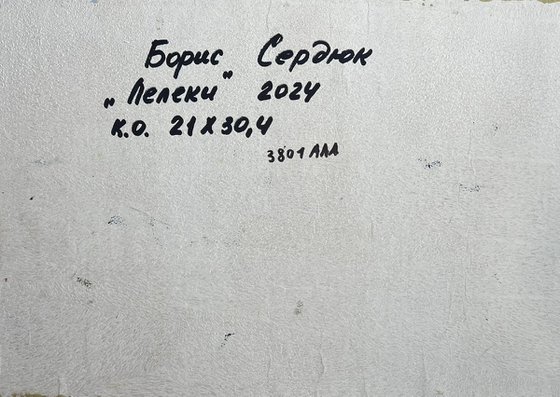 Борис Сердюк
„Лелеки" 2024
К.О. 21 X 30,4
3801 ААА